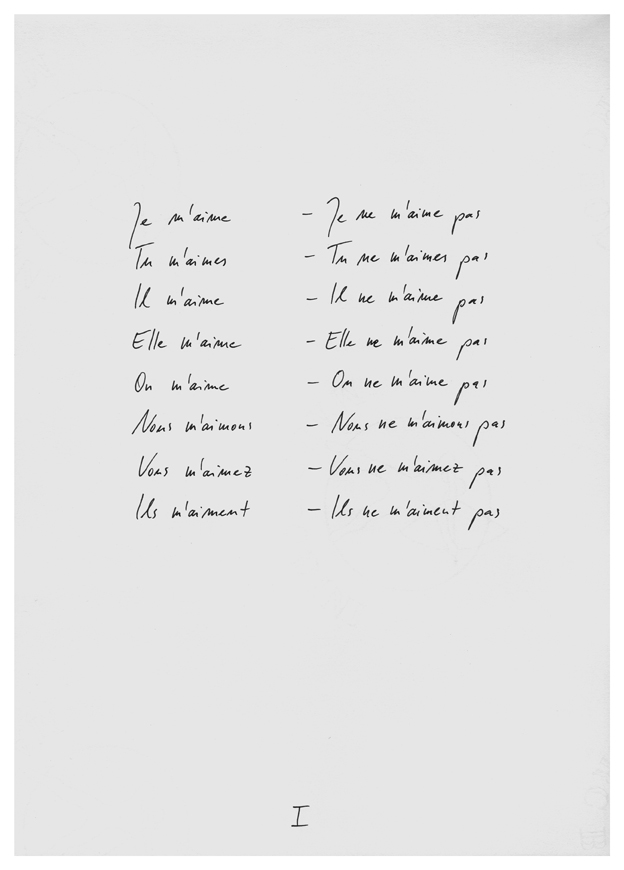 Je m'aime – Je ne m'aime pas
Tu m'aimes – Tu ne m'aimes pas
Il m'aime – Il ne m'aime pas
Elle m'aime – Elle ne m'aime pas
On m'aime – On ne m'aime pas
Nous m'aimons – Nous ne m'aimons pas
Vous m'aimez – Vous ne m'aimez pas
Ils m'aiment – Ils ne m'aiment pas
I